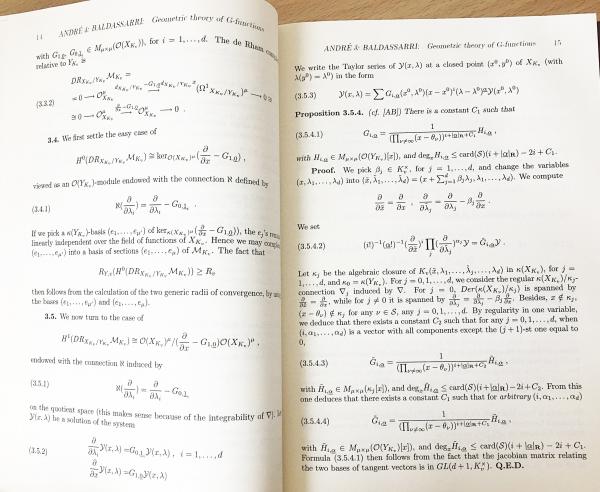 14 ANDRÉ & BALDASSARRI: Geometric theory of G-functions
with G_{1,0}, G_{0,1_i} ∈ M_{μ×μ}(O(X_{K_v})), for i = 1, . . . , d. The de Rham
relative to Y_{K_v} is
DR_{X_{K_v}/Y_{K_v}} M_{K_v} =
(3.3.2)
3.4. We first settle the easy case of
H^0(DR_{X_{K_v}/Y_{K_v}} M_{K_v}) ≅ ker_{O(X_{K_v})^μ}(∂/∂x − G_{1,0}) ,
viewed as an O(Y_{K_v})-module endowed with the connection ℵ defined by
(3.4.1) ℵ(∂/∂λ_i) = ∂/∂λ_i − G_{0,1_i} .
If we pick a κ(Y_{K_v})-basis (e_1, . . . , e_{μ'}) of ker_{κ(X_{K_v})^μ}(∂/∂x − G_{1,0}), the e_j's
linearly independent over the field of functions of X_{K_v}. Hence we may
(e_1, . . . , e_{μ'}) into a basis of sections (e_1, . . . , e_μ) of M_{K_v}. The fact that
R_{Y,v}(H^0(DR_{X_{K_v}/Y_{K_v}} M_{K_v})) ≥ R_v
then follows from the calculation of the two generic radii of convergence, by
the bases (e_1, . . . , e_{μ'}) and (e_1, . . . , e_μ).
3.5. We now turn to the case of
H^1(DR_{X_{K_v}/Y_{K_v}} M_{K_v}) ≅ O(X_{K_v})^μ/(∂/∂x − G_{1,0})O(X_{K_v})^μ ,
endowed with the connection ℵ induced by
(3.5.1) ℵ(∂/∂λ_i) = ∂/∂λ_i − G_{0,1_i}
on the quotient space (this makes sense because of the integrability of ∇).
Y(x, λ) be a solution of the system
∂/∂λ_i Y(x, λ) = G_{0,1_i} Y(x, λ) , i = 1, . . . , d
(3.5.2)
∂/∂x Y(x, λ) = G_{1,0} Y(x, λ)
ANDRÉ & BALDASSARRI: Geometric theory of G-functions 15
We write the Taylor series of Y(x, λ) at a closed point (x^0, y^0) of X_{K_v} (with
λ(y^0) = λ^0) in the form
(3.5.3) Y(x, λ) = ∑ G_{i,α}(x^0, λ^0)(x − x^0)^i(λ − λ^0)^α Y(x^0, λ^0)
Proposition 3.5.4. (cf. [AB]) There is a constant C_1 such that
(3.5.4.1) G_{i,α} = 1/(∏_{ν≠∞}(x − θ_ν))^{i+|α|R+C_1} H_{i,α} ,
with H_{i,α} ∈ M_{μ×μ}(O(Y_{K_v})[x]), and deg_x H_{i,α} ≤ card(S)(i + |α|R) − 2i + C_1.
Proof. We pick β_j ∈ K_v^×, for j = 1, . . . , d, and change the variables
(x, λ_1, . . . , λ_d) into (x̃, λ̃_1, . . . , λ̃_d) = (x + ∑_{j=1}^d β_jλ_j, λ_1, . . . , λ_d). We compute
∂/∂x̃ = ∂/∂x , ∂/∂λ̃_j = ∂/∂λ_j − β_j ∂/∂x .
We set
(3.5.4.2) (i!)^{-1}(α!)^{-1}(∂/∂x̃)^i ∏_j (∂/∂λ̃_j)^{α_j} Y = G̃_{i,α} Y .
Let κ_j be the algebraic closure of K_v(x̃, λ̃_1, . . . , λ̃_j, . . . , λ̃_d) in κ(X_{K_v}), for j =
1, . . . , d, and κ_0 = κ(Y_{K_v}). For j = 0, 1, . . . , d, we consider the regular κ(X_{K_v})/κ_j-
connection ∇_j induced by ∇. For j = 0, Der(κ(X_{K_v})/κ_j) is spanned by
∂/∂x̃ = ∂/∂x, while for j ≠ 0 it is spanned by ∂/∂λ̃_j = ∂/∂λ_j − β_j ∂/∂x. Besides, x ∉ κ_j,
(x − θ_ν) ∉ κ_j for any ν ∈ S, any j = 0, 1, . . . , d. By regularity in one variable,
we deduce that there exists a constant C_2 such that for any j = 0, 1, . . . , d, when
(i, α_1, . . . , α_d) is a vector with all components except the (j + 1)-st one equal to
0,
(3.5.4.3) G̃_{i,α} = 1/(∏_{ν≠∞}(x − θ_ν))^{i+|α|R+C_2} H̃_{i,α} ,
with H̃_{i,α} ∈ M_{μ×μ}(κ_j[x]), and deg_x H̃_{i,α} ≤ card(S)(i + |α|R) − 2i + C_2. From this
one deduces that there exists a constant C_1 such that for arbitrary (i, α_1, . . . , α_d)
(3.5.4.4) G̃_{i,α} = 1/(∏_{ν≠∞}(x − θ_ν))^{i+|α|R+C_1} H̃_{i,α} ,
with H̃_{i,α} ∈ M_{μ×μ}(O(Y_{K_v})[x]), and deg_x H̃_{i,α} ≤ card(S)(i + |α|R) − 2i + C_1.
Formula (3.5.4.1) then follows from the fact that the jacobian matrix relating
the two bases of tangent vectors is in GL(d + 1, K_v^×). Q.E.D.